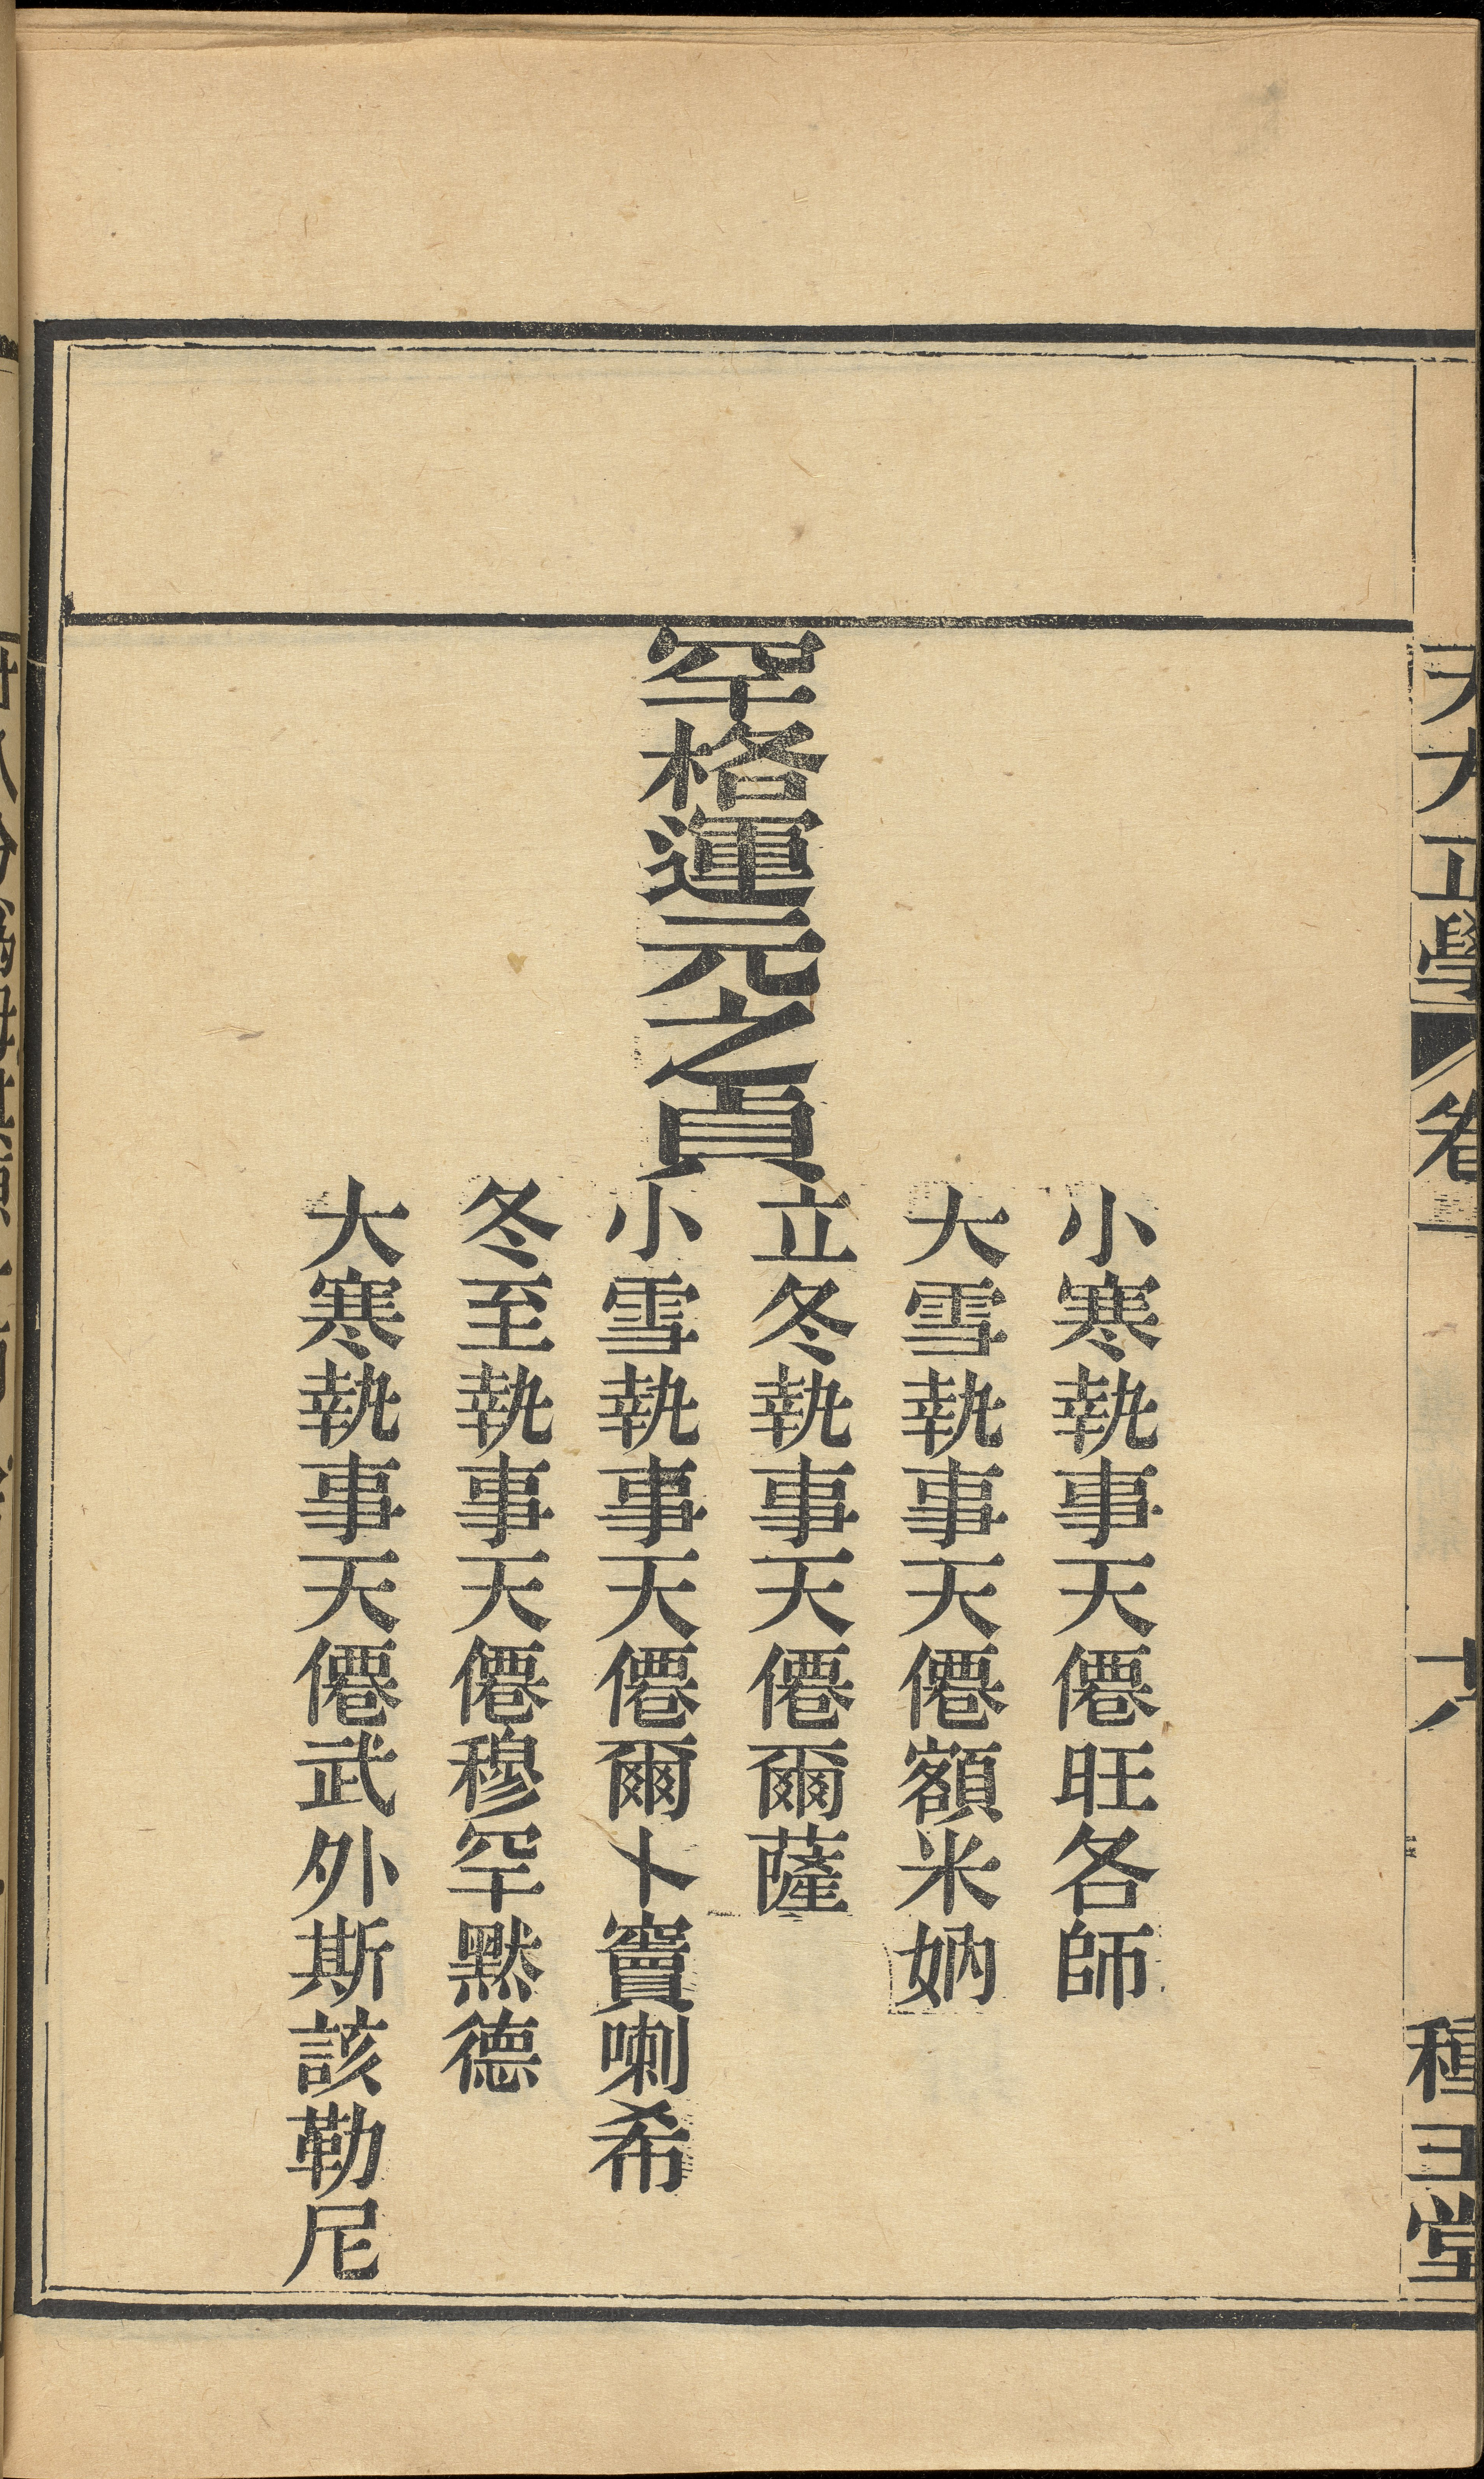 天方正學 卷一 種玉堂
小寒執事天僊旺各師
大雪執事天僊額米妠
立冬執事天僊爾薩
罕格運元之貞
小雪執事天僊爾卜竇喇希
冬至執事天僊穆罕默德
大寒執事天僊武外斯該勒尼